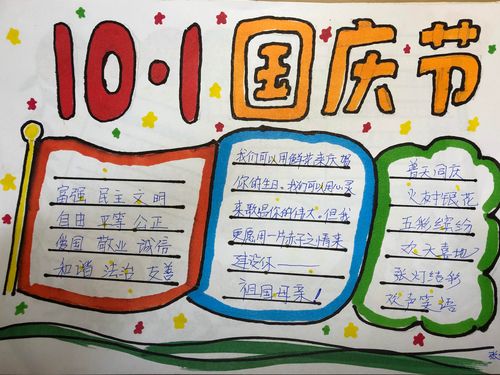 10·1国庆节
富强 民主 文明
自由 平等 公正
爱国 敬业 诚信
和谐 法治 友善
我们可以用鲜花来庆祝
你的生日,我们可以用心灵
来歌唱你的伟大。但我
更愿用一片赤子之情来
建设你——
祖国母亲!
普天同庆
火树银花
五彩缤纷
欢天喜地
张灯结彩
欢声笑语